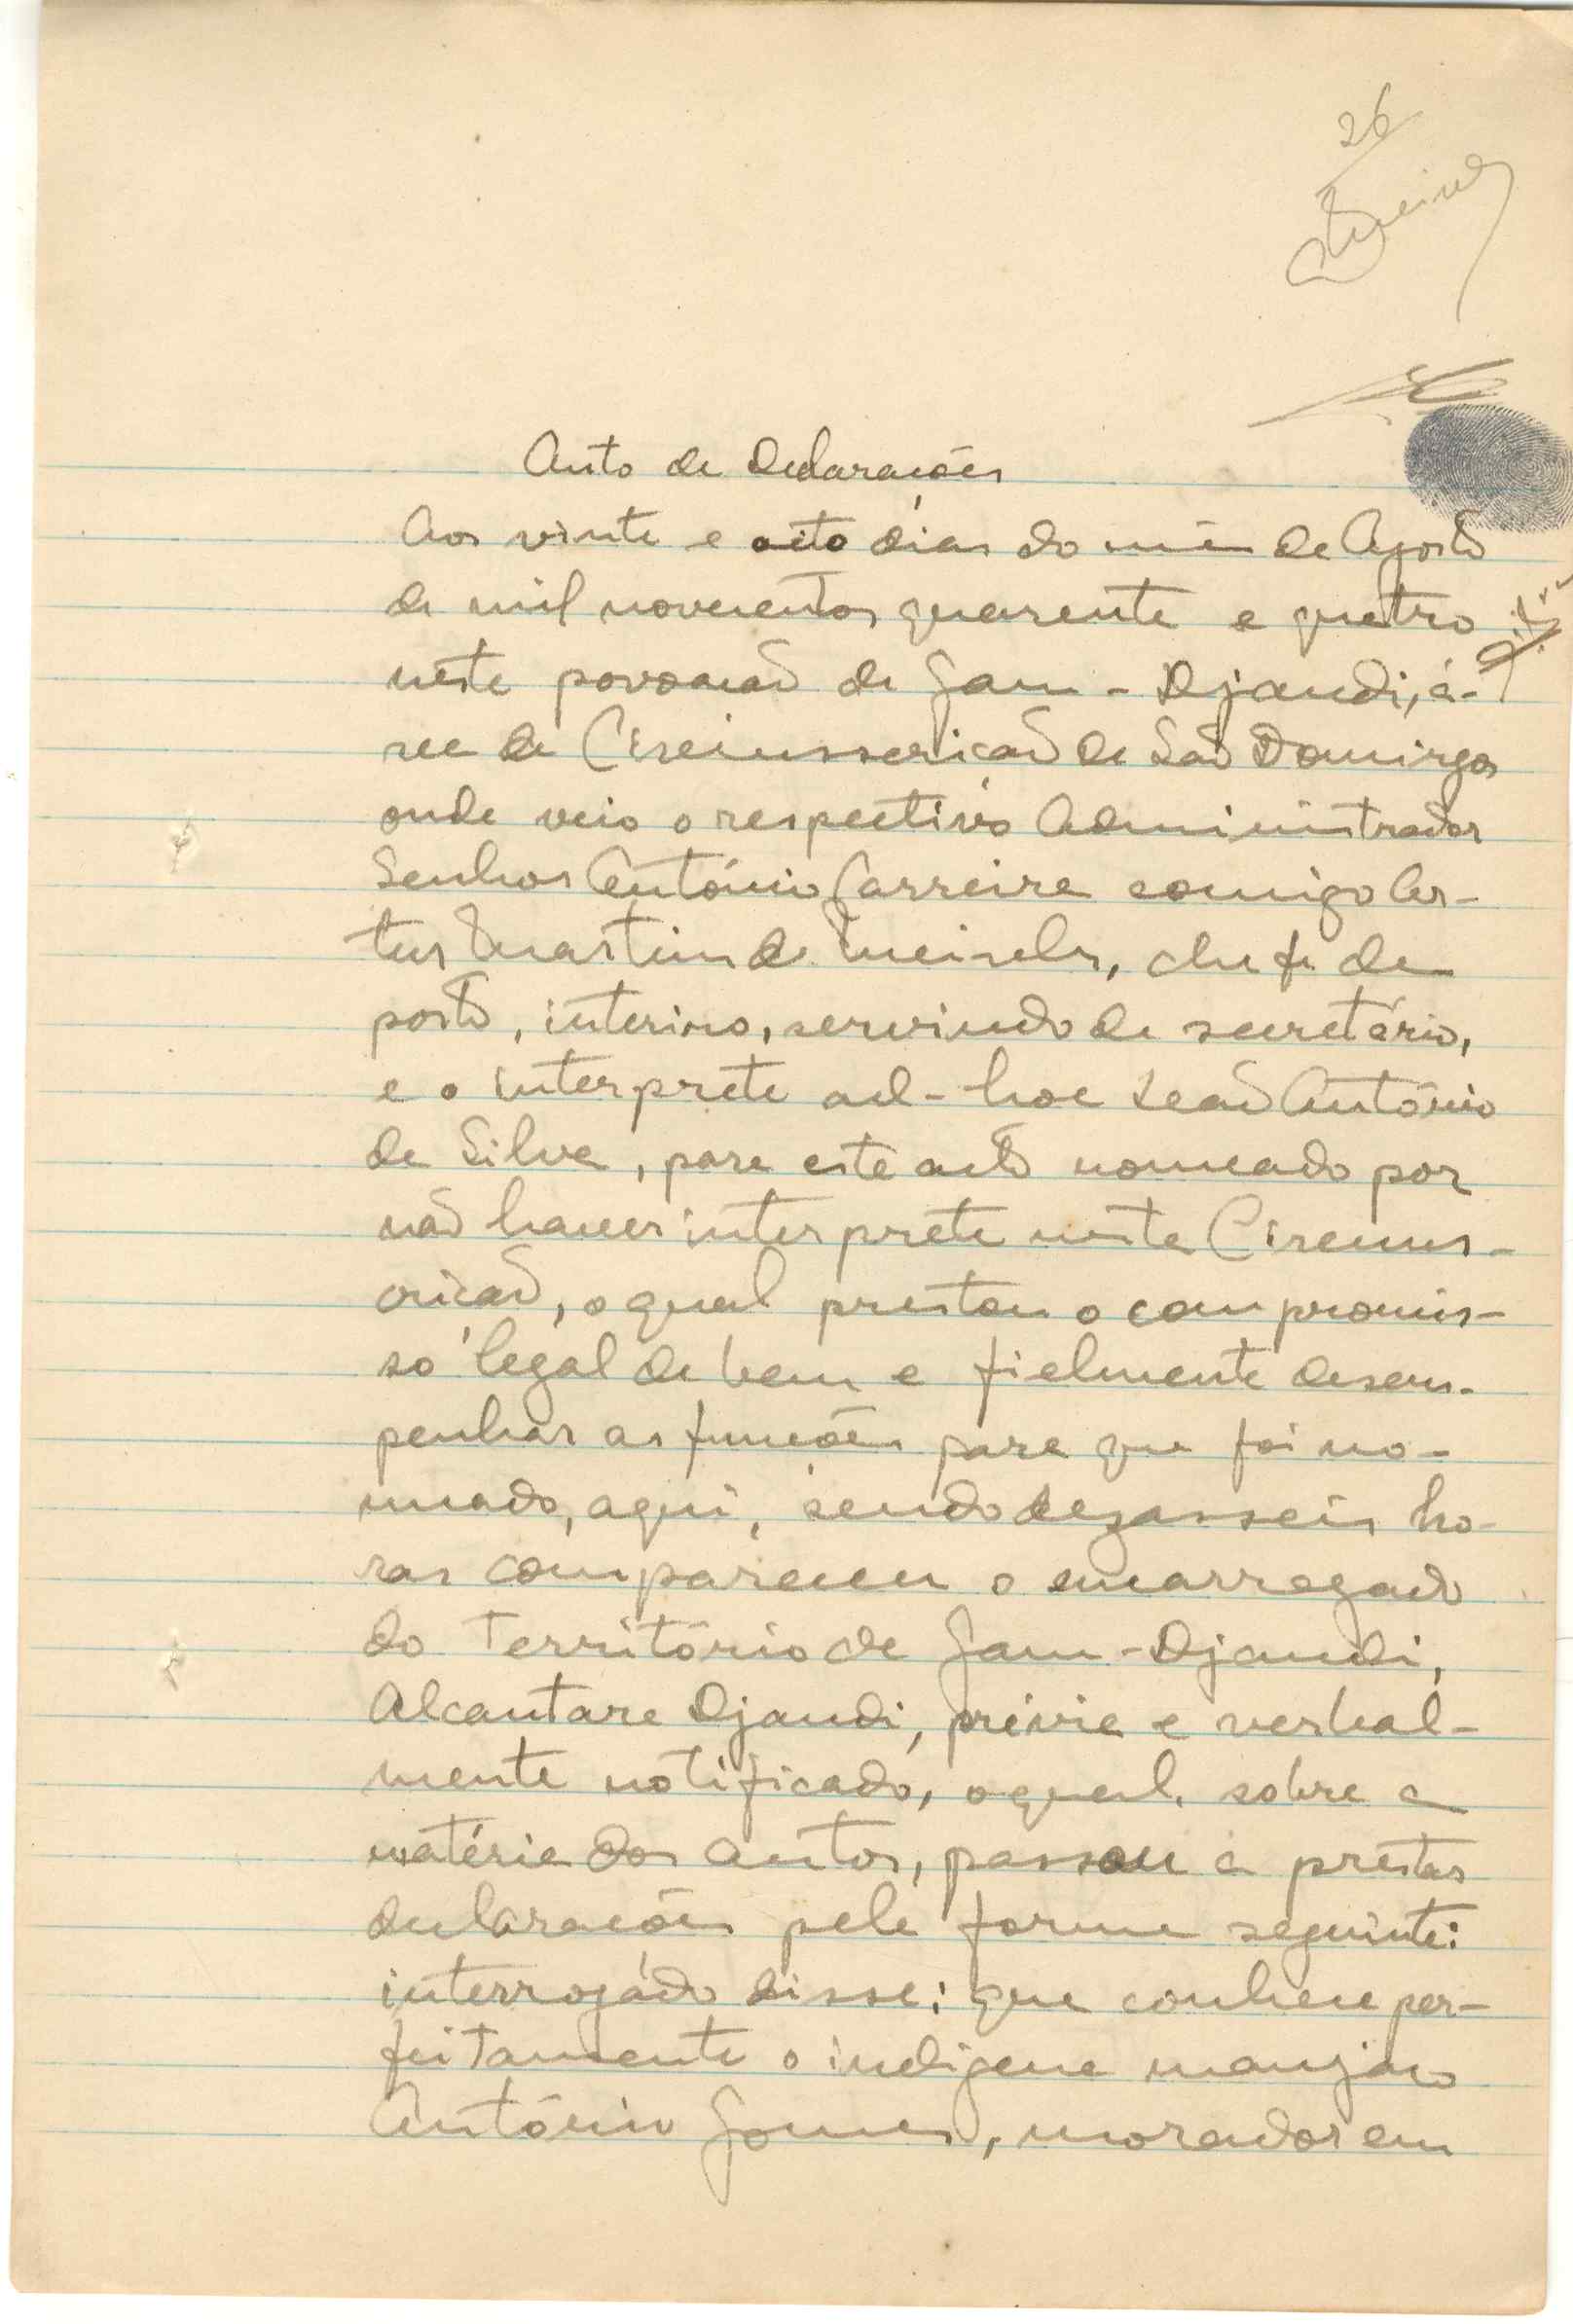 26
Auto de Declarações
Aos vinte e oito dias do mês de Agosto
de mil novecentos quarenta e quatro
nesta povoação de Jam-Djandi, á-
rea da Circunscrição de São Domingos
onde veio o respectivo Administrador
Senhor António Carreira comigo Ar-
tur Martins de Meireles, chefe de
posto, interino, servindo de secretário,
e o interprete ad-hoc Leão António
da Silva, para este acto nomeado por
não haver interprete nesta Circuns-
crição, o qual prestou o compromis-
so legal de bem e fielmente desem-
penhar as funções para que foi no-
meado, aqui, sendo dezasseis ho-
ras compareceu o encarregado
do Território de Jam-Djandi,
Alcantara Djandi, prévia e verbal-
mente notificado, o qual, sobre a
matéria dos autos, passou a prestar
declarações pela forma seguinte:
interrogádo disse: que conhece per-
feitamente o indigena manjaco
António Gomes, morador em